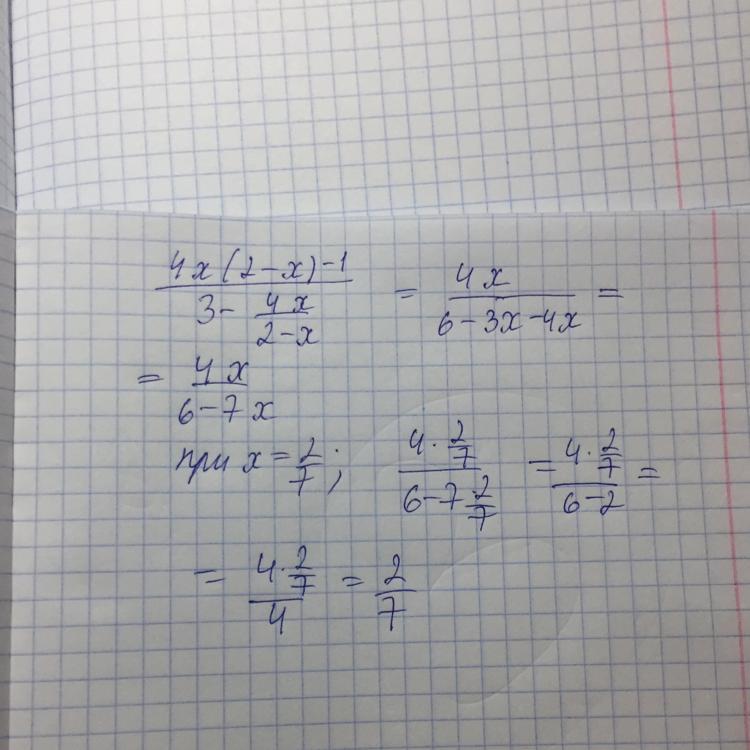 4x(2-x)-1 / (3 - 4x/(2-x)) = 4x / (6-3x-4x) =
= 4x / (6-7x)
при x = 2/7; (4·2/7) / (6-7·2/7) = (4·2/7) / (6-2) =
= (4·2/7) / 4 = 2/7